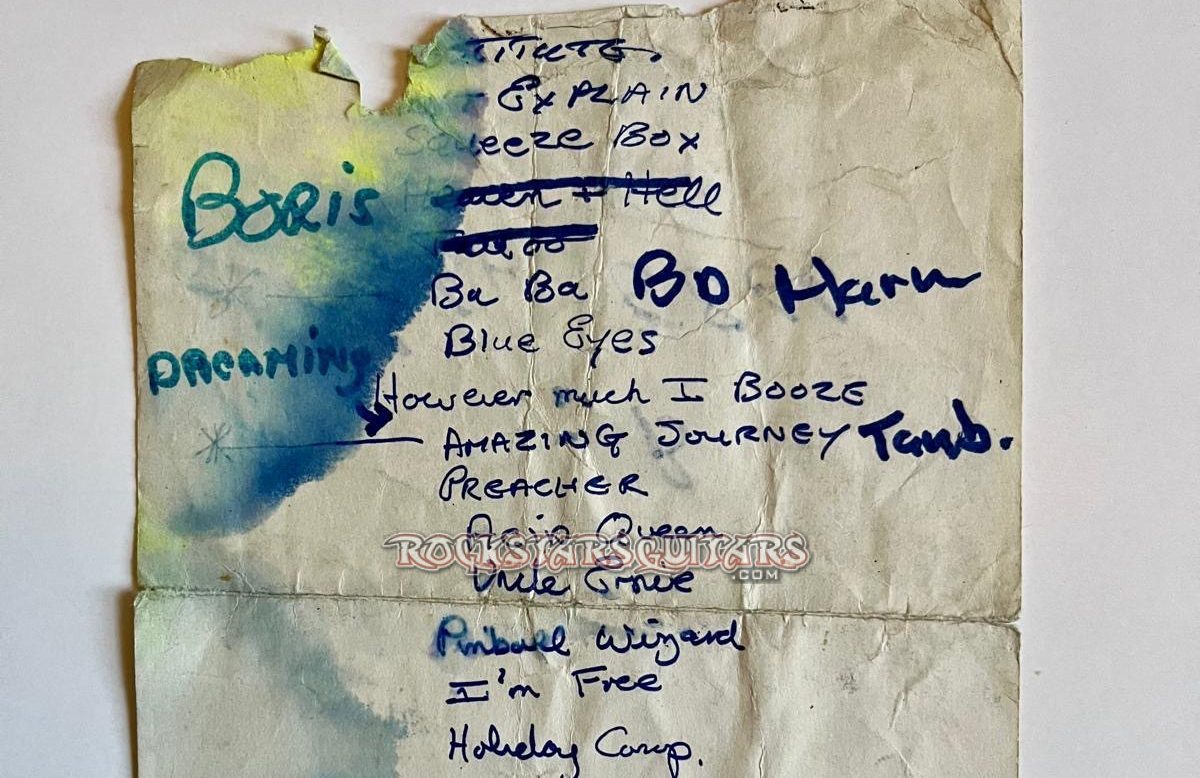 EXPLAIN
Squeeze Box
Boris
Heaven + Hell
Tattoo
Ba Ba Bo Harm
Blue Eyes
DREAMING
However much I BOOZE
AMAZING JOURNEY Tamb.
PREACHER
Acid Queen
ROCKSTARSGUITARS
.COM
Uncle Ernie
Pinball Wizard
I'm Free
Holiday Camp.